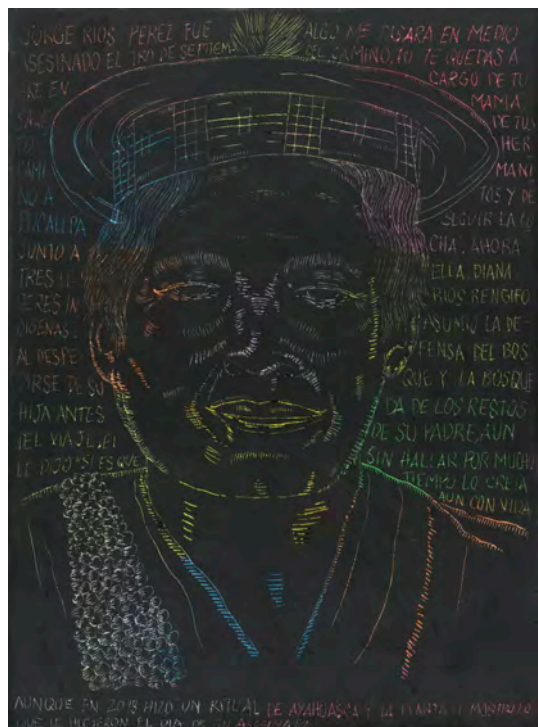 JORGE RIOS PEREZ FUE
ASESINADO EL 1RO DE SEPTIEM
BRE EN
SAWE
TO
CAMI
NO A
PUCALLPA
JUNTO A
TRES LI
DERES IN
DIGENAS.
AL DESPE
DIRSE DE SU
HIJA ANTES
DEL VIAJE, EL
LE DIJO "SI ES QUE
ALGO ME PASARA EN MEDIO
DEL CAMINO, TU TE QUEDAS A
CARGO DE TU
MAMA
DE TUS
HER
MANI
TOS Y DE
SEGUIR LA LU
CHA. AHORA
ELLA, DIANA
RIOS RENGIFO
ASUMIO LA DE-
FENSA DEL BOS
QUE Y LA BOSQUE
DA DE LOS RESTOS
DE SU PADRE, AUN
SIN HALLAR POR MUCHO
TIEMPO LO CREIA
AUN CON VIDA
AUNQUE EN 2018 HIZO UN RITUAL DE AYAHUASCA Y LA PLANTA LE MOSTRO LO
QUE LE HICIERON EL DIA DE SU ASESINATO